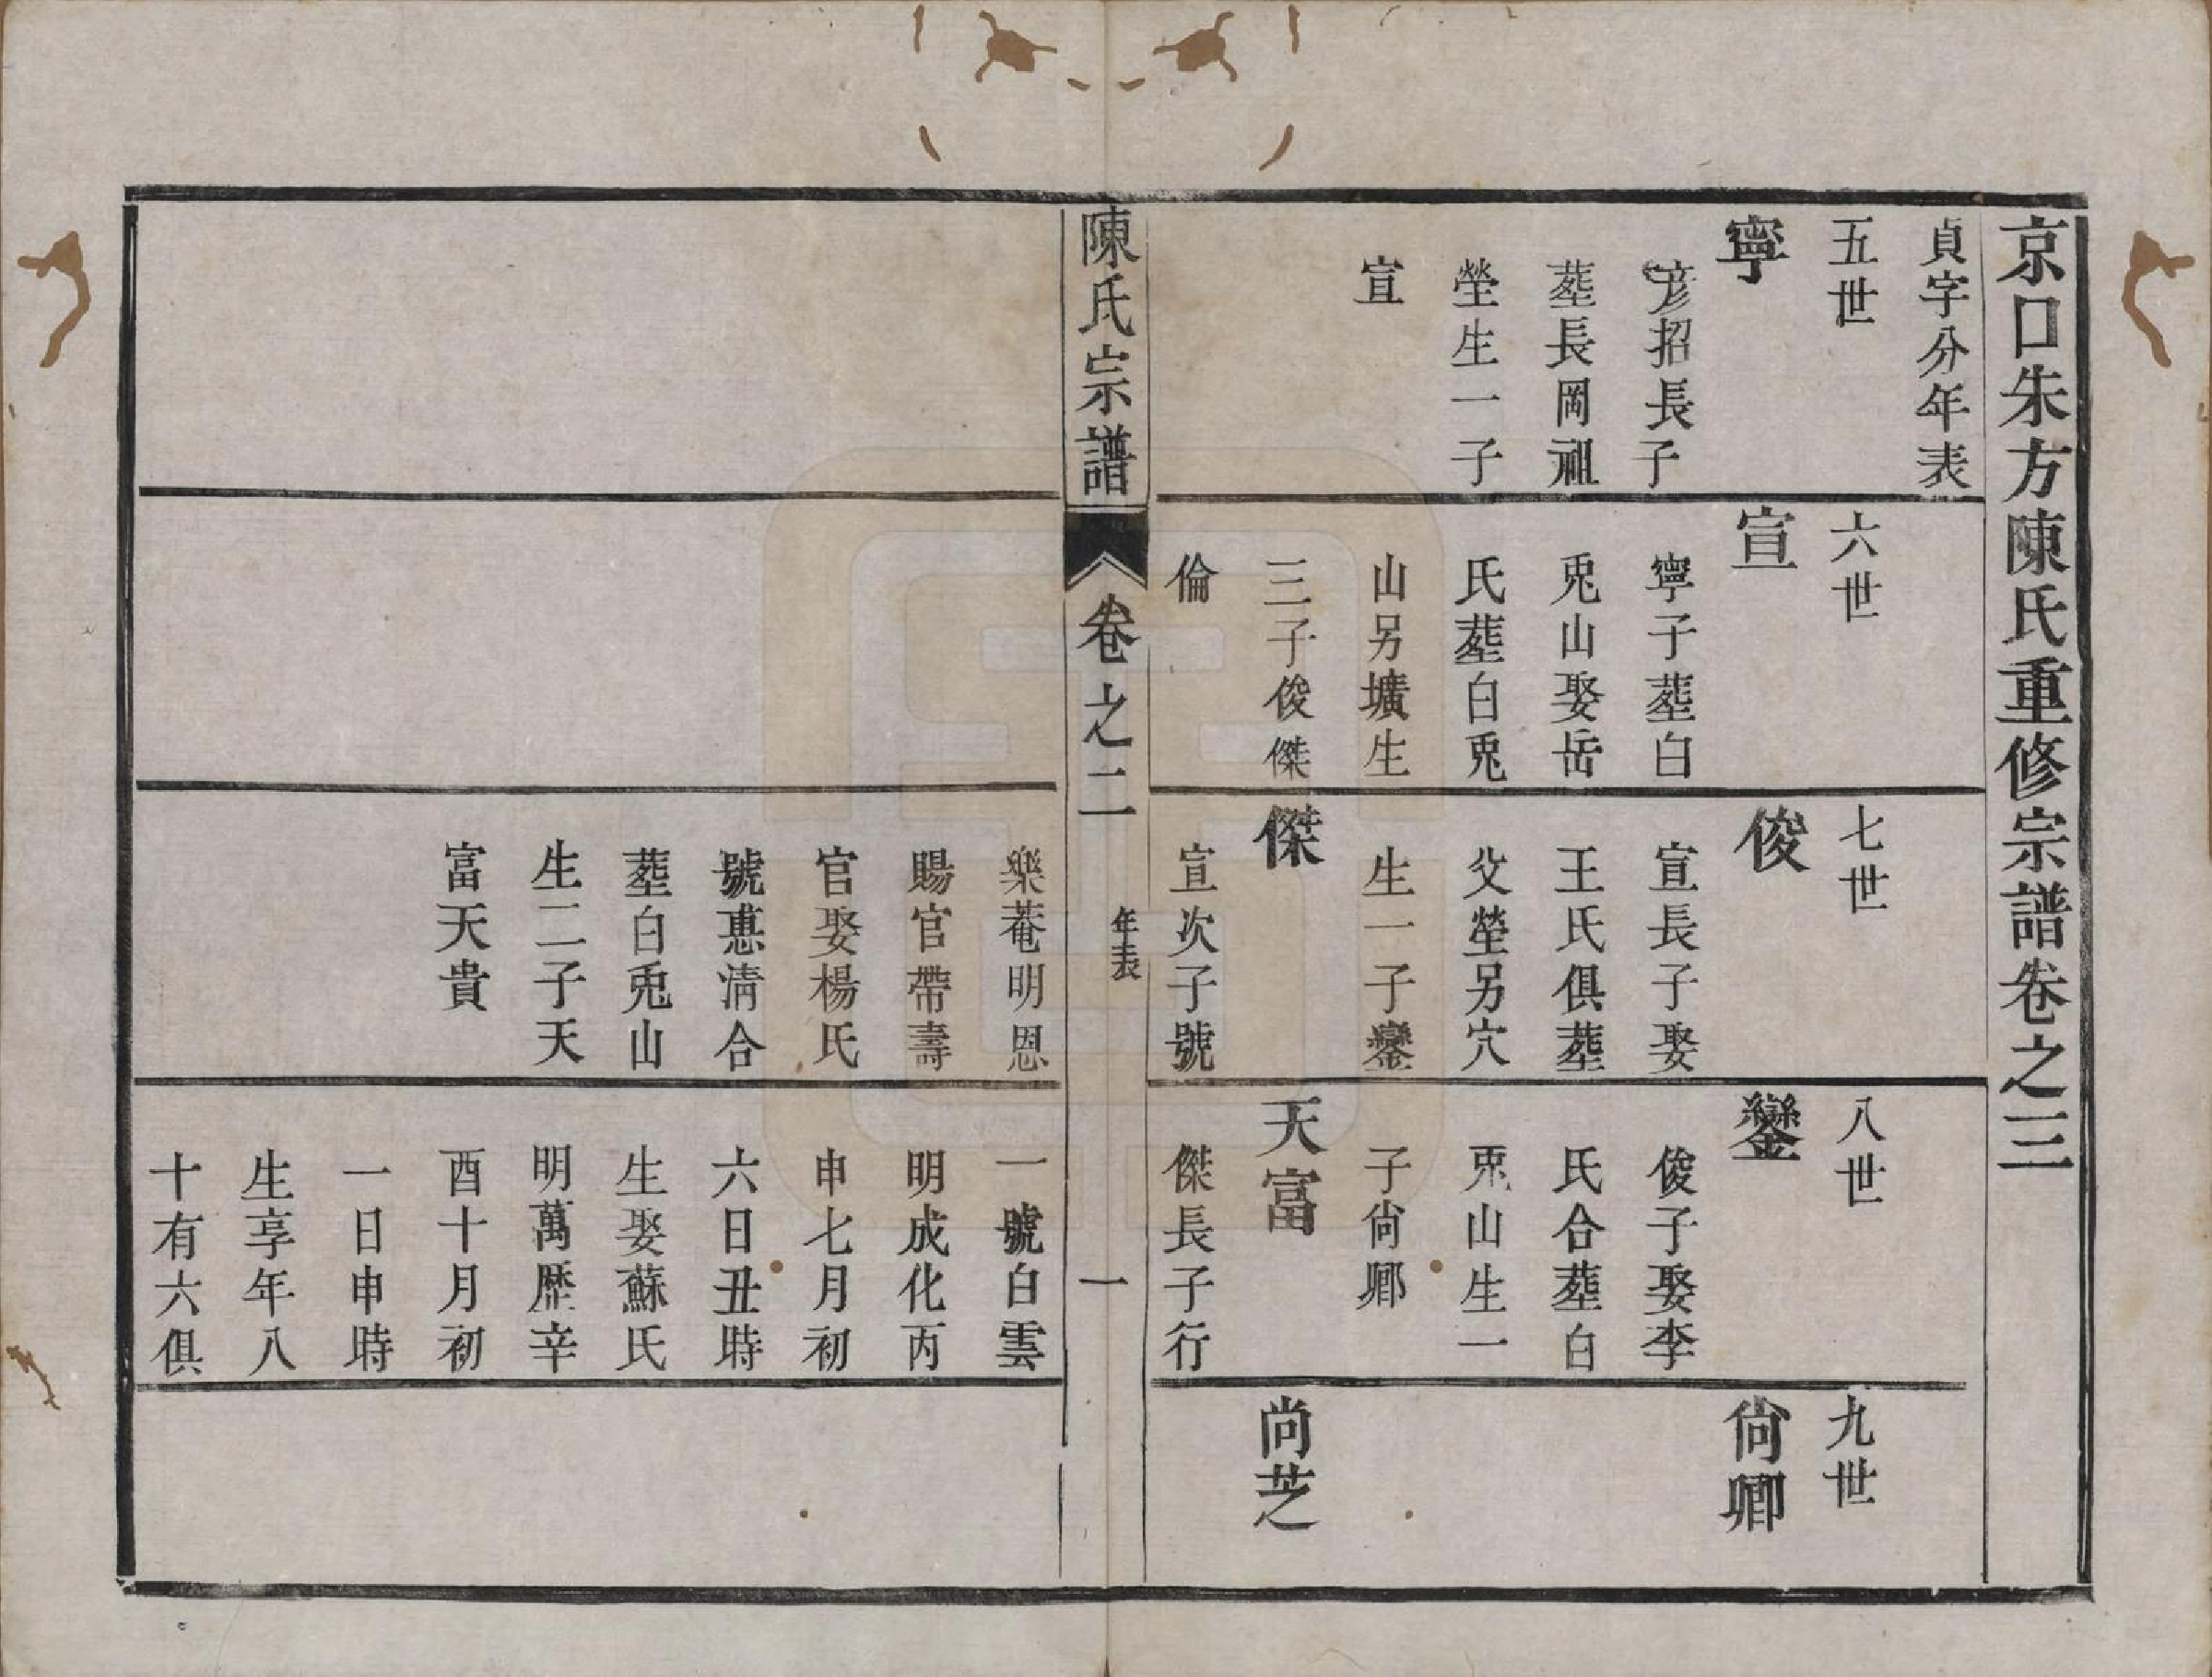 京口朱方陳氏重修宗譜卷之三
貞字分年表
五世
寧
彥招長子
塟長岡祖
塋生一子
宣
六世
宣
寧子塟白
兎山娶岳
氏塟白兎
山另壙生
三子俊傑
倫
七世
俊
宣長子娶
王氏俱塟
父塋另穴
生一子鑾
傑
宣次子號
八世
鑾
俊子娶李
氏合塟白
兎山生一
子尙卿
天富
傑長子行
九世
尙卿
尚芝
陳氏宗譜
卷之二
年表
一
樂菴明恩
賜官帶壽
官娶楊氏
號惠淸合
塟白兎山
生二子天
富天貴
一號白雲
明成化丙
申七月初
六日丑時
生娶蘇氏
明萬歷辛
酉十月初
一日申時
生享年八
十有六俱